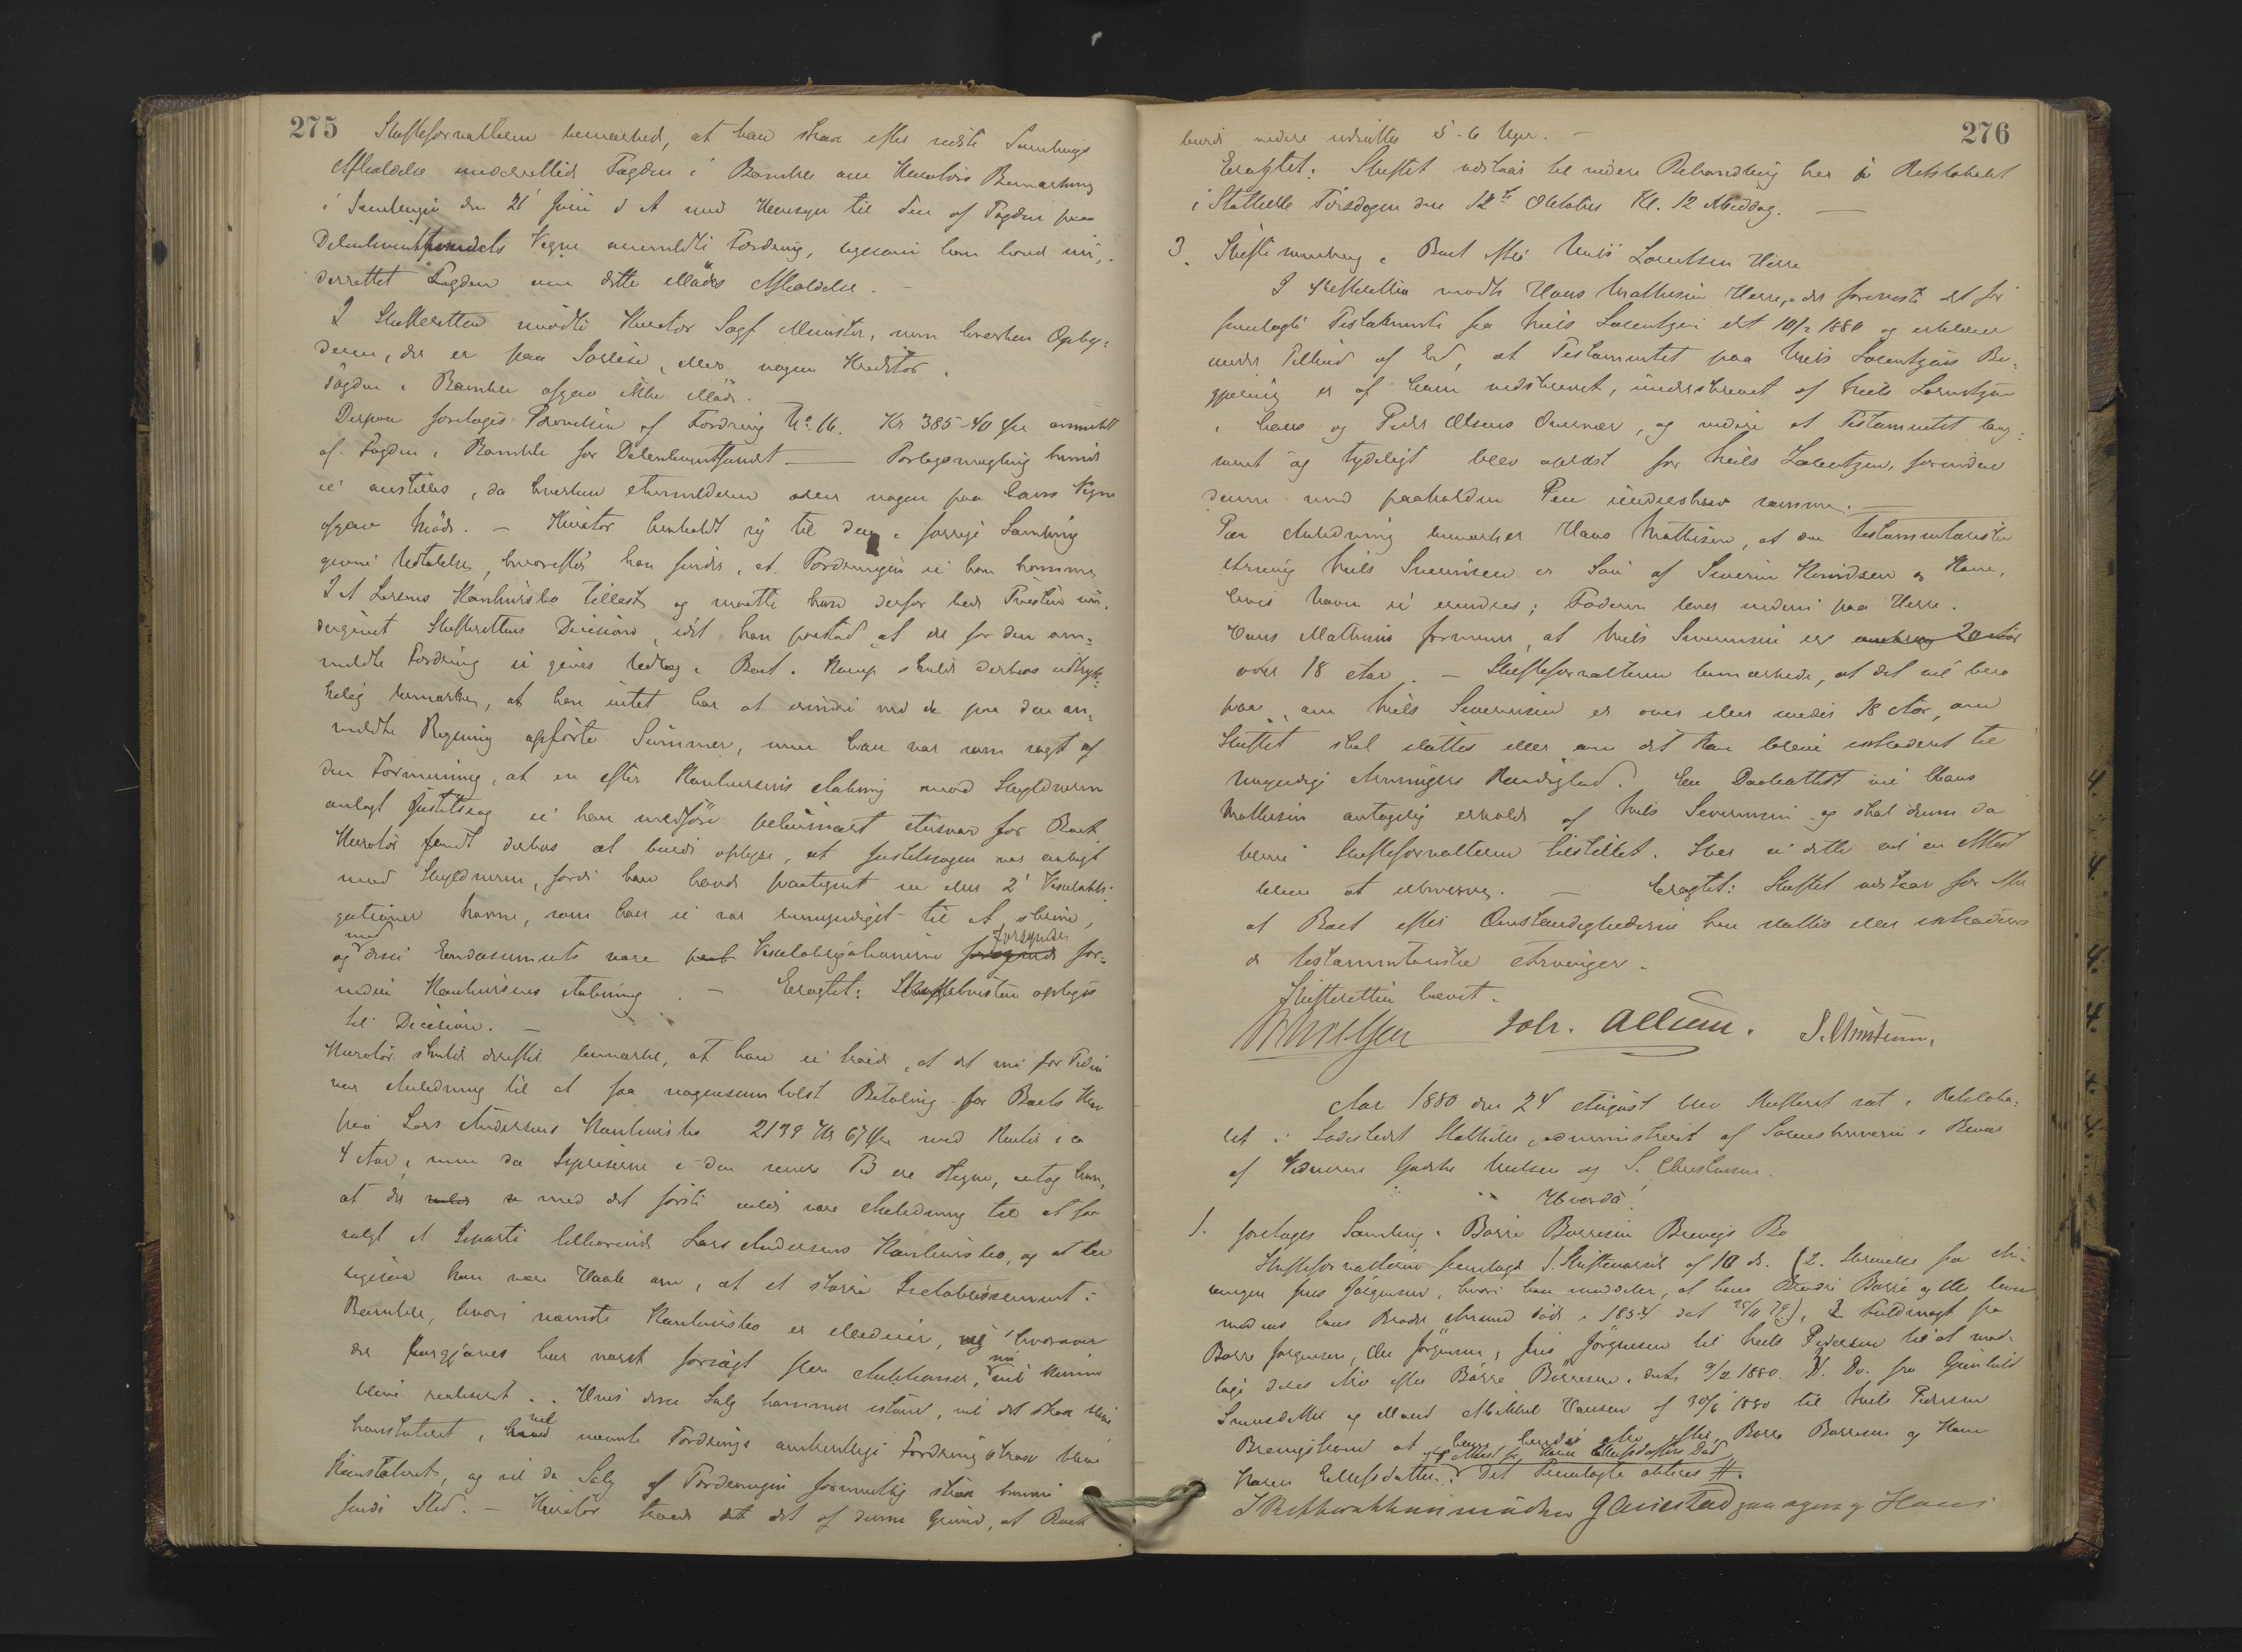 275
Skifteforvalteren bemærked, at han strax efter sidste Samlings
Afholdelse underrettede Fogden i Bamble om Kurators Bemærkning
i Samlingen den 21 Juni d A med Hensyn til den af Fogden paa
Delenkvent fondets Vegne anmeldte Fordring, ligesom han havde un-
derrettet Fogden om dette Mødes Afholdelse. –
I Skifteretten mødte Kurator Sagf Münster, men hverken Opby-
deren, der er paa Søreise, eller nogen Kreditor.
Fogden i Bamble afgav ikke Møde.
Derpaa foretages Prøvelsen af Fordring No 16. Kr 385-40 Øre anmeldt
af Fogden i Bamble for Delenkventfondet — Forligsmægling kunde
ei anstilles, da hverken Anmelderen eller nogen paa hans Vegne
afgav Møde. – Kurator henholdt sig til den i forrige Samling
givne Udtalelse, hvorefter han finder, at Fordringen ei kan komme
I A Larsens Konkursbo tillast og maatte han derfor bede Tvisten un-
dergivet Skifterettens Decision, idet han paastod at der for den an-
meldte Fordring ei gives Udlæg i Boet. Komp skulde derhos udtryk-
kelig bemærke, at han intet har at erindre mod de paa den an-
meldte Regning opførte Summer, men han var som sagt af
den Formening, at en efter Konkursens Aabning mod Skyldneren
anlagt Justitssag ei kan medføre pekuniært Ansvar for Boet
Kurator fandt derhos at burde oplyse, at Justitssagen var anlagt
mod Skyldneren, fordi han havde paategnet en eller 2 Vexelobli-
gationer Navne, som han ei var bemyndiget til at skrive,
og med disse Endossements vare Vexelobligationerne forsynede for-
inden Konkursens Aabning. – Eragtet: Skiftetvisten optages
til Decision. –
Kurator skulde derefter bemærke, at han ei troede, at det nu for Tiden
var Anledning til at faa nogensomhelst Betaling for Boets Krav
paa Lars Andersens Konkursbo 2139 Kr 67 Øre med Renter i ca
4 Aar, men da Ispriserne i den senere Tid ere stegne, antog han,
at der med det første vilde være Anledning til at faa
solgt et Isparti tilhørende Lars Andersens Konkursbo, og at der
ligesaa kan være Haab om, at et større Isetablissement i
Bamble, hvori nævnte Konkursbo er Medeier, og hvorover
der forgjæves har været forsøgt flere Auktioner, nu vil kunne
blive realiseret. Hvis disse Salg kommer istand, vil det strax blive
konstateret, ved nævnte Fordrings ankentlige Fordring strax blive
konstateret, og vil da Salg af Fordringen formentlig strax kunne
finde Sted. – Kurator troede at det af denne Grund, at Boet
276
burde videre udsættes 5-6 Uger. –
Eragtet: Skiftet udstaar til videre Behandling her i Retslokalet
i Stathelle Tirsdagen den 12te Oktober Kl. 12 Middag. —
3. Skiftesamling i Boet efter Niels Lorentsen Herre
I Skifteretten mødte Hans Mathisen Herre, der foreviste det før
fremlagte Testamente fra Niels Lorentzen dat 10/2 1880 og erklærer
under Tilbud af Ed, at Testamentet paa Niels Lorentzens Be-
gjæring er af ham nedskrevet, underskrevet af Niels Lorentzen
i hans og Peder Olsens Nærvær, og videre at Testamentet lang-
somt og tydeligt blev oplæst for Niels Lorentzen, forinden
denne med paaholden Pen underskrev samme. —
Paa Anledning bemærker Hans Mathisen, at den testamentariske
Arving Niels Severinsen er Søn af Severin Knudsen og Kone,
hvis Navn ei erindres; Faderen lever endnu paa Herre.
Hans Mathisen formener, at Niels Severinsen er omkring 20 Aar
over 18 Aar. – Skifteforvalteren bemærkede, at det vil bero
paa, om Niels Severinsen er over eller under 18 Aar, om
Skiftet skal sluttes eller om det kan blive extraderet til
myndige Arvingers Raadighed. En Daabsattest vil Hans
Mathisen antagelig erholde af Niels Severinsen og skal denne da
blive Skifteforvalteren tilstillet. Skeer ei dette vil en Attest
blive at erhverve. — Eragtet: Skiftet udstaar for Afr
at Boet efter Omstændighederne kan sluttes eller extraderes
de testamentariske Arvinger.
Skifteretten hævet.
Joh. Allum. S. Münster.
Aar 1880 den 24 August blev Skifteret sat i Retsloka-
let i Ladestedet Stathelle, administreret af Sorenskriveren i Overvær
af Vidnerne Gjødske Nielsen og S. Christensen.
Hvorda!
1. foretages Samling i Børre Børresen Brevigs Bo
Skifteforvalteren fremlagde 1. Skiftevarsel af 10 ds. (2. Skrivelse fra Ar-
vingen Jens Jørgensen, hvori han meddeler, at hans Brødre Børre og Ole lever
medens hans Broder Amund døde i 1854 dat 25/11 79), 3 Fuldmagt fra
Børre Jørgensen, Ole Jørgensen, Jens Jørgensen til Niels Pedersen til at mod-
tage deres Arv efter Børre Børresen. dat 9/2 1880. 4. Do. fra Gunhild
Simonsdatter og Mand Mikkel Hansen af 30/6 1880 til Niels Pedersen
Brevigstrand at hæve hendes Arv efter Børre Børresen og Kone
Karen Ellefsdatter. 5 Attest for Karen Ellefsdatters Død Det Fremlagte akteres #.
I Skiftesamlingen mødte G Aarestad paa egne og Hans